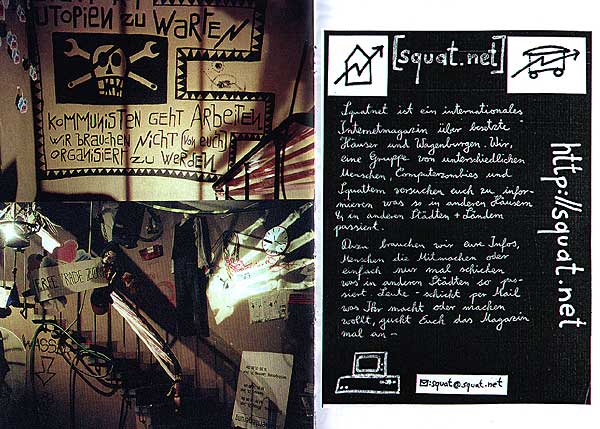 UTOPIEN ZU WARTEN
KOMMUNISTEN GEHT ARBEITEN
WIR BRAUCHEN NICHT (VON EUCH)
ORGANISIERT ZU WERDEN
FREE TRADE ZONE
WASSER
[squat.net]
Squatnet ist ein internationales
Internetmagazin über besetzte
Häuser und Wagenburgen. Wir,
eine Gruppe von unterschiedlichen
Menschen, Computerzombies und
Squattern versuchen euch zu infor-
mieren was so in anderen Häusern
& in anderen Städten + Ländern
passiert.
Dazu brauchen wir eure Infos,
Menschen die Mitmachen oder
einfach nur mal schicken
was in anderen Städten so pas-
siert. Leute - schickt per Mail
was Ihr macht oder machen
wollt, guckt Euch das Magazin
mal an -
http://squat.net
:squat@squat.net